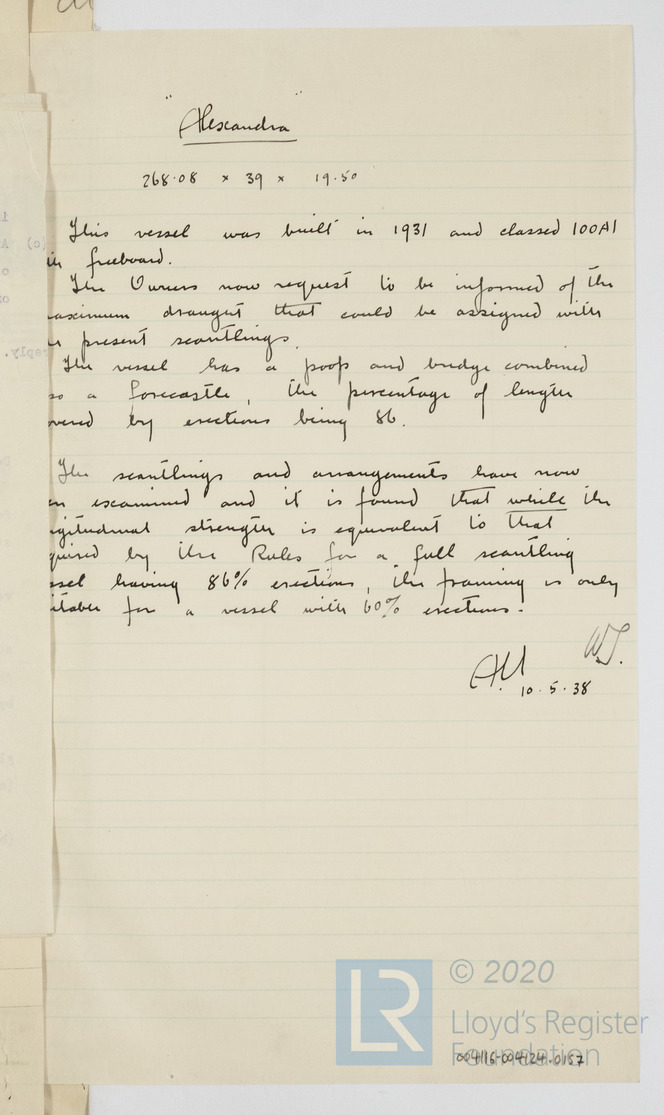 "Alexandra"
268.08 × 39 × 19.50
This vessel was built in 1931 and classed 100A1
freeboard.
The Owners now request to be informed of the
maximum draught that could be assigned with
present scantlings.
The vessel has a poop and bridge combined
a forecastle, the percentage of length
by erections being 86.
The scantlings and arrangements have now
examined and it is found that while the
longitudinal strength is equivalent to that
by the Rules for a full scantling
having 86% erections, the framing is only
for a vessel with 60% erections.
10.5.38
reply.
(c)
LR
© 2020
Lloyd's Register
Foundation
004116-004124-0157